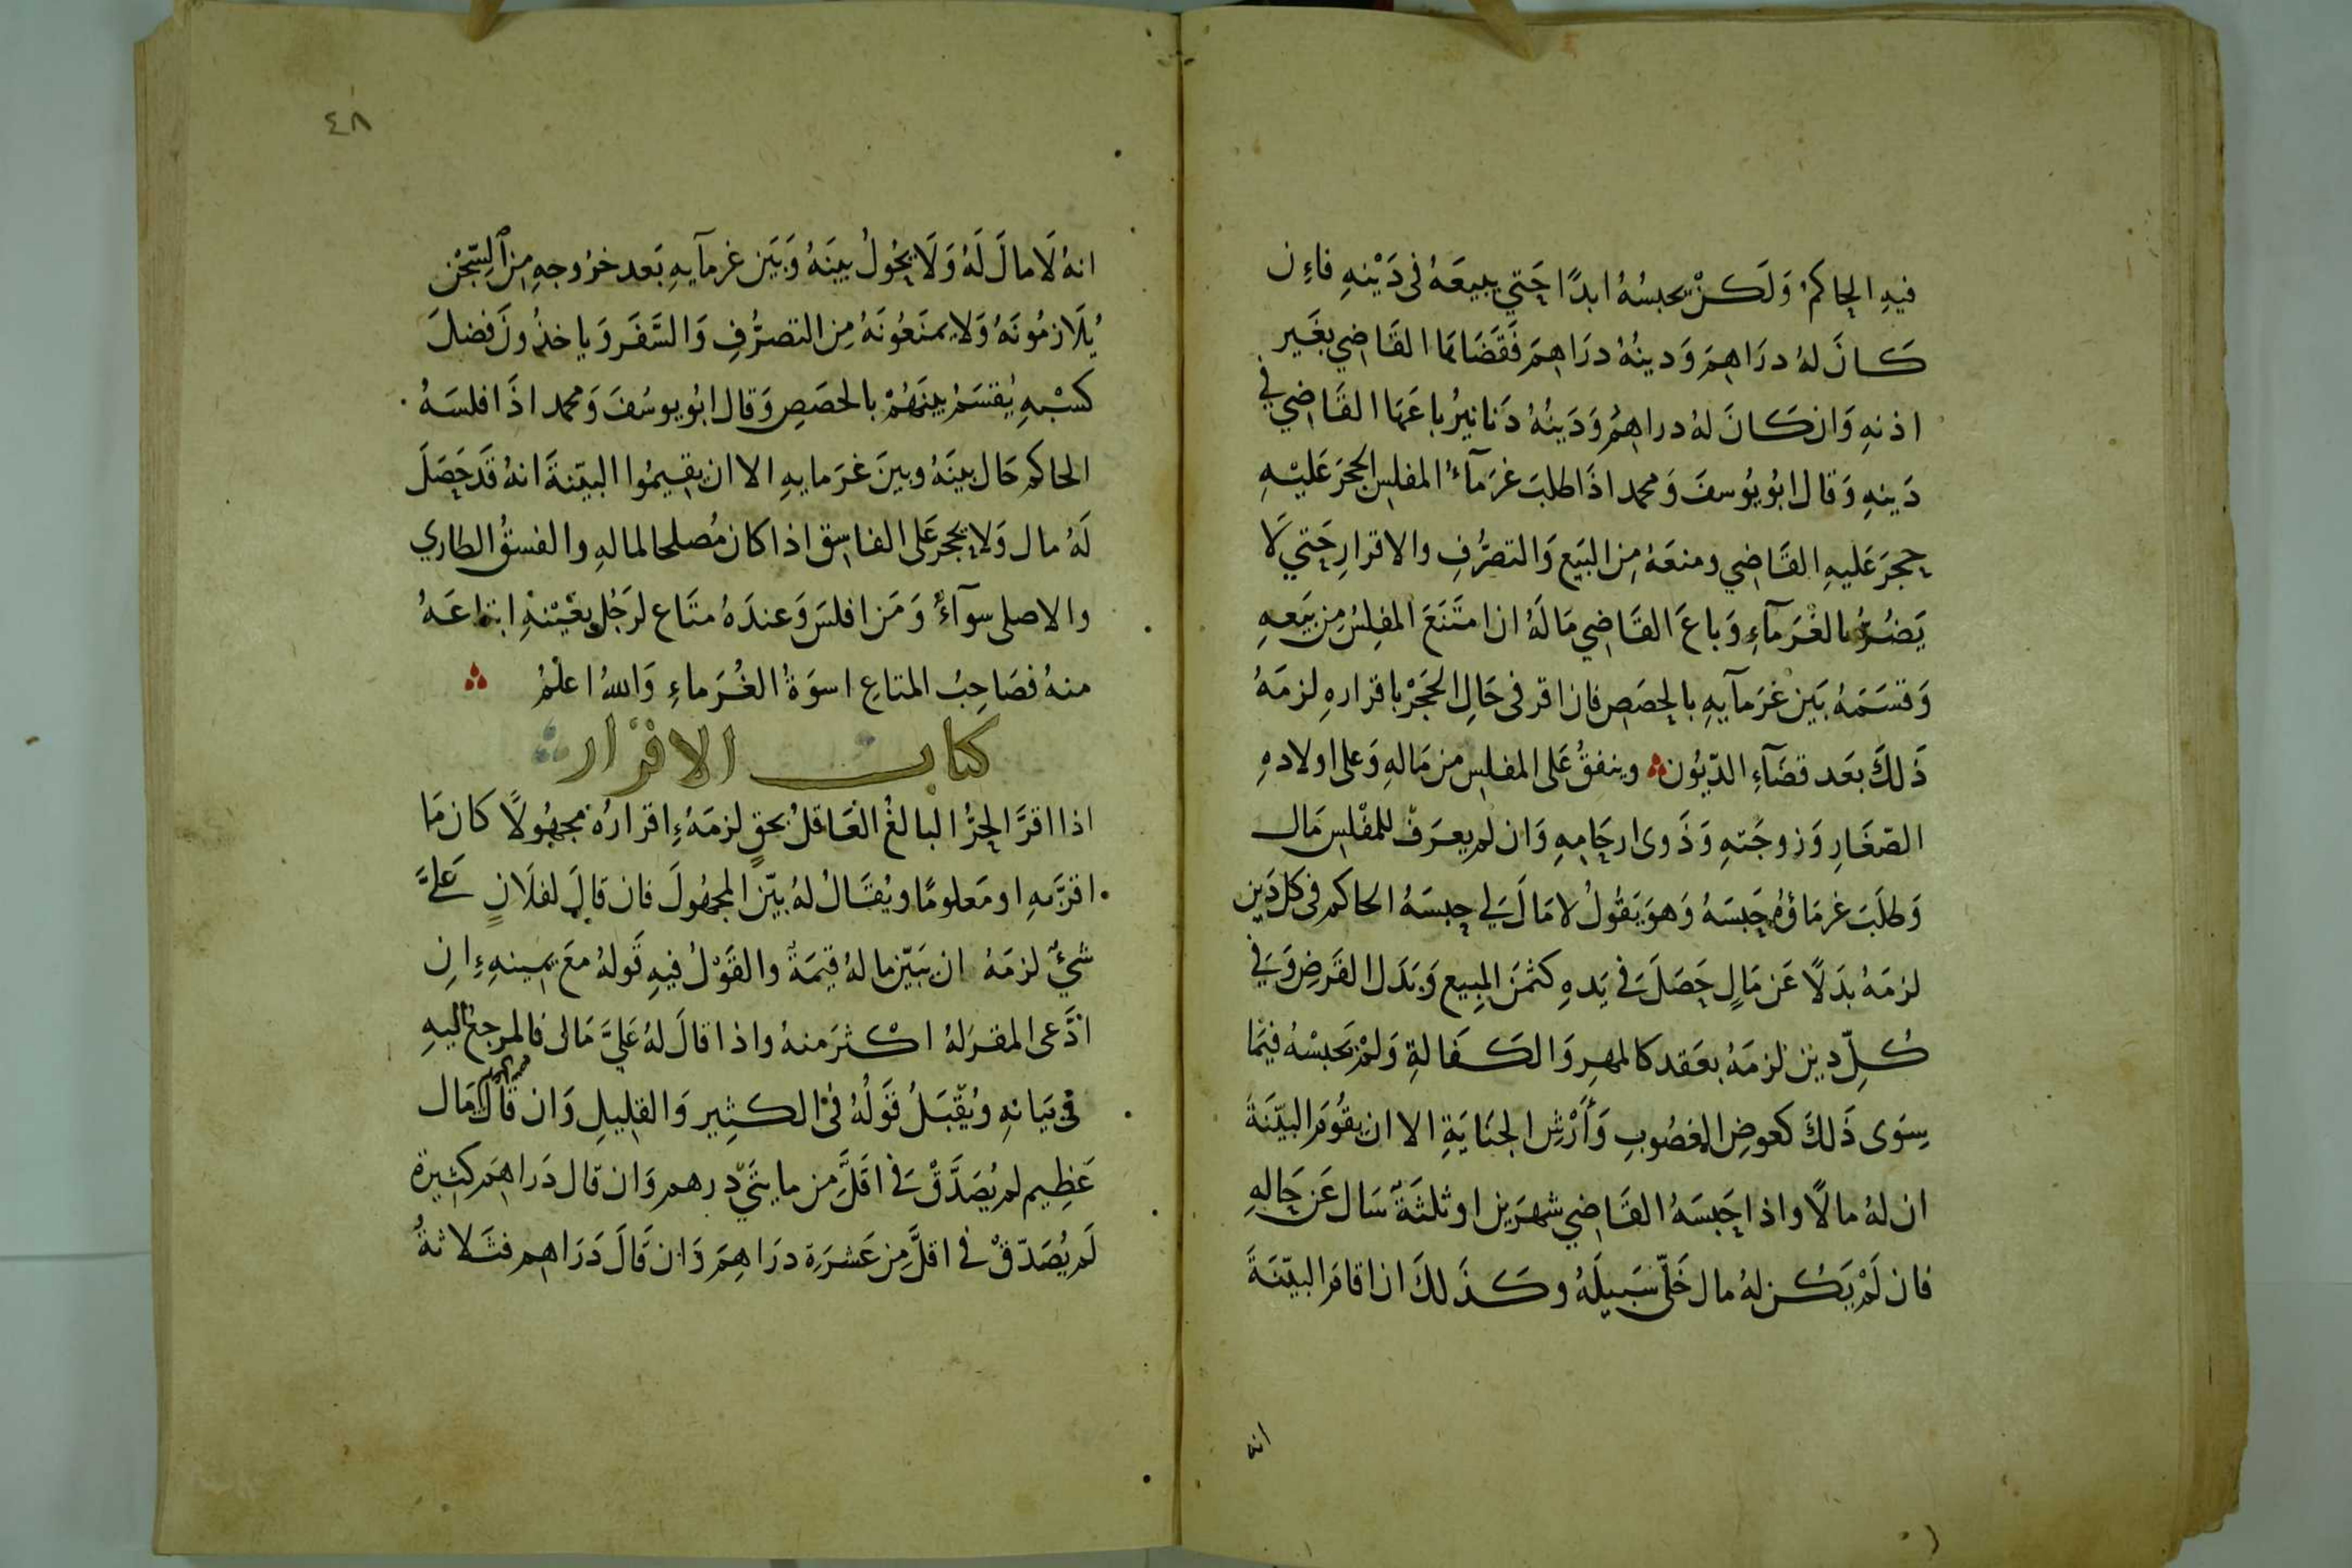 فيهِ الحاكمُ وَلَكنْ يحبسُهُ ابدًا حَتي يبيعَهُ فى دَيْنِهِ فاءِن
كَانَ لهُ درَاهِمَ وَدينُهُ درَاهِمَ فَقَضَاهَا القَاضِي بغَير
اذنهِ وَان كَانَ لهُ دراهِمُ وَدَينُهُ دَنانيرُ باعَهَا القَاضِي في
دَينهِ وَقال ابُو يُوسفَ وَمحمد اذَا طلبَ غرَمآءُ المفلِسِ الحجرَ عَليْهِ
حجرَ عَليهِ القَاضِي ومنعَهُ مِن البَيع وَالتصرُّفِ والاقرارِ حَتي لَا
يَضُرُّ بالغُرَمآءِ وَباعَ القَاضِي مَالَهُ ان امتَنَعَ المفلِسُ مِن بَيَعهِ
وَقسَمَهُ بَينَ غرَمآيهِ بالحِصَصِ فان اقر فى حَالِ الحَجَرْ باقرارهِ لزمَهُ
ذَلكَ بعَد قضَآءِ الدّيُون وينفقُ عَلى المفلسِ من مَالهِ وَعلى اولادهِ
الصّغَارِ وَزوجَتهِ وَذَوى ارحَامِهِ وَان لم يعرَفْ للمفْلسِ مَال
وَطلَبَ غرمَاؤهُ حَبسَهُ وَهوَ يَقُولُ لا مَالَ لِي حبسَهُ الحاكم فى كل دَين
لزمَهُ بدَلًا عَن مَالٍ حَصَلَ فى يَدهِ كثمَنَ المبيع وَبَدَل القَرضِ وَفي
كُلِّ دين لزمَهُ بعَقد كالمهرِ وَالكَفالةِ وَلمْ يَحبسْهُ فيمَا
سِوَى ذَلكَ كعوضِ المغصُوبِ وَأرْشِ الجنَايَةِ الا ان يقُومَ البيّنَةَ
ان لهُ مالًا واذا حَبسَهُ القَاضِي شهرَين او ثلثَةً سَال عَن حَالهِ
فان لَمْ يَكُن لهُ مال خَلّى سَبيلَهُ وكَذَلكَ ان اقامَ البيّنَةَ
انه
٤٨
انهُ لَا مالَ لَهُ وَلَا يحُولُ بينَهُ وَبَيَن غرمآيهِ بَعد خرُوجهِ مِنَ السِّجْن
يُلَازمُونَهُ وَلا يمنَعُونَهُ مِن التصرُّفِ وَالسَّفَر وَياخذُونَ فضلَ
كسْبهِ يُقسَمُ بينَهُمْ بالحصَصِ وَقال ابُو يوسُفَ وَمحمد اذَا افلسَهُ
الحاكم حَال بينَهُ وبينَ غرَمايهِ الا ان يقِيمُوا البيّنةَ انهُ قَد حَصَلَ
لَهُ مال وَلا يحجر عَلى الفاسِق اذا كان مُصلحا لمالهِ والفسقُ الطاري
والاصلى سوآءٌ وَمَن افلسَ وَعندَهُ متَاع لرَجُل بعَيْنهِ ابتاعَهُ
منهُ فصَاحِبُ المتاعِ اسوَةُ الغُرَماءِ وَاللهُ اعلمُ
كتاب الاقرار
اذا اقرَّ الحِرُّ البالغُ العَاقلُ بحقٍ لزمَهُ اقرارُهُ مجهُولًا كان مَا
اقرَّ بهِ او مَعلومًا ويُقَالُ لهُ بيّن المجهُولَ فان قالَ لفلَانٍ عَلَيَّ
شيءٌ لزمَهُ ان يبَيّن ما لهُ قيمَةٌ والقَوْلُ فيهِ قَولهُ معَ يمينهِ انِ
ادَّعى المقرَ لهُ اكثرَ منهُ واذا قالَ لهُ عَليَّ مَال فالمرجعُ اليهِ
فى بيَانهِ ويُقْبَلُ قَولُهُ فى الكثِير وَالقلِيلِ وَان قال مَال
عَظِيم لم يُصَدَّقْ فى اقَلَّ مِن مايتَيّ درهم وَان قال دَراهِمَ كثِيرة
لَم يُصَدّقْ فى اقلَّ مِن عَشرَة درَاهِمَ وَان قَالَ دَرَاهِم فثَلاثةُ